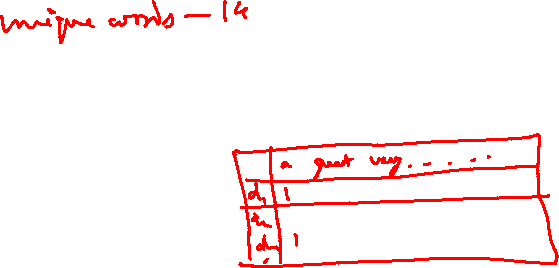 unique words — 14
a great very . . . . .
d₁ 1
d₂
d₃ 1